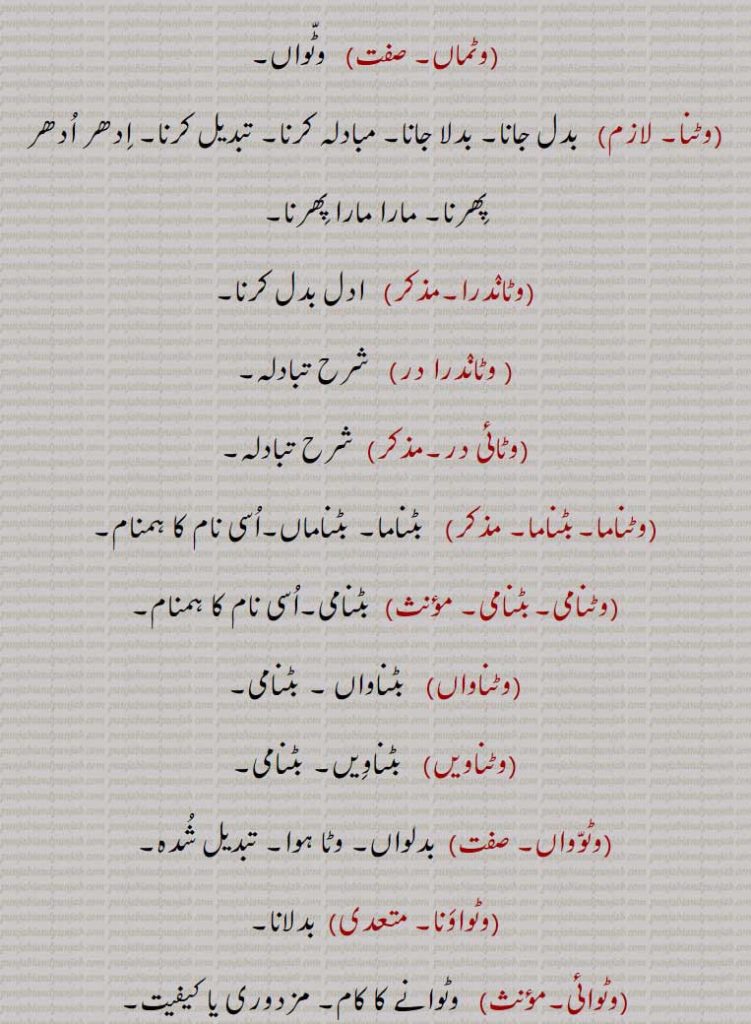 (وٹماں۔ صفت) وٹّواں۔
(وٹنا۔ لازم) بدل جانا۔ بدلا جانا۔ مبادلہ کرنا۔ تبدیل کرنا۔ اِدھر اُدھر
پِھرنا۔ مارا مارا پِھرنا۔
(وٹانْدرا۔مذکر) ادل بدل کرنا۔
( وٹانْدرا در) شرح تبادلہ۔
(وٹائی در۔مذکر) شرح تبادلہ۔
(وٹناما۔ بٹناما۔ مذکر) بٹناما۔ بٹناماں۔اُسی نام کا ہمنام۔
(وٹنامی۔ بٹنامی۔ مؤنث) بٹنامی۔اُسی نام کا ہمنام۔
(وٹناواں) بٹناواں ۔ بٹنامی۔
(وٹناویں) بٹناوِیں۔ بٹنامی۔
(وٹوّواں۔ صفت) بدلواں۔ وٹا ہوا۔ تبدیل شُدہ۔
(وٹواؤنا۔ متعدی) بدلانا۔
(وٹوائی۔مؤنث) وٹوانے کا کام۔ مزدوری یا کیفیت۔